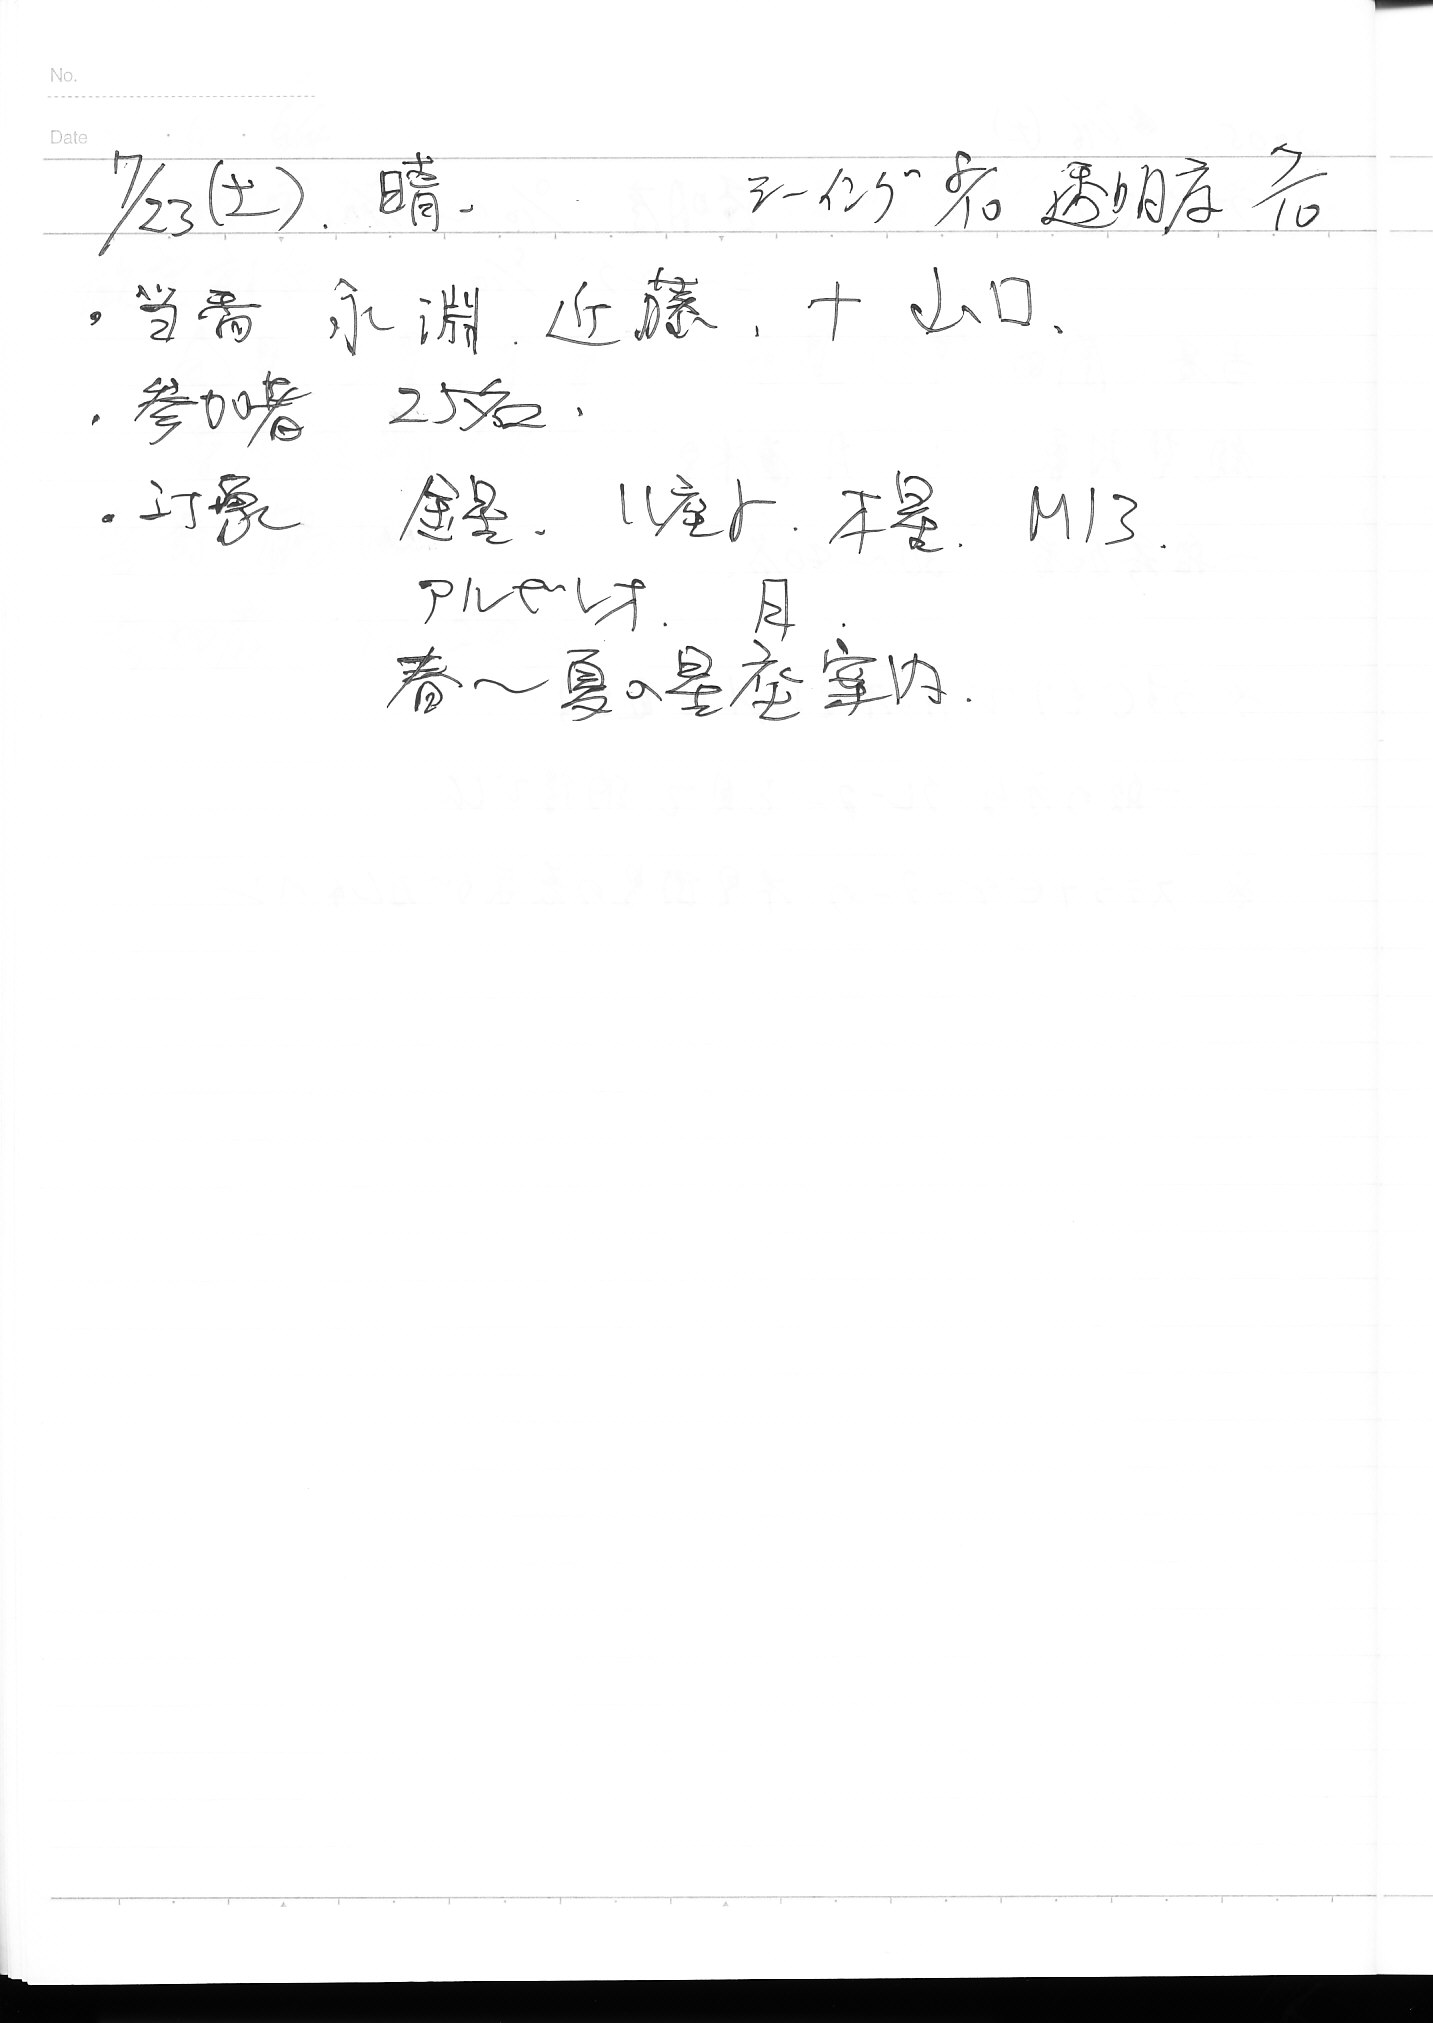 No.
Date
7/23(土). 晴. シーイング 8/10 透明度 7/10
・当番 永淵. 近藤. + 山口.
・参加者 25名.
・対象 金星. しし座γ. 木星. M13.
アルビレオ. 月.
春〜夏の星座案内.